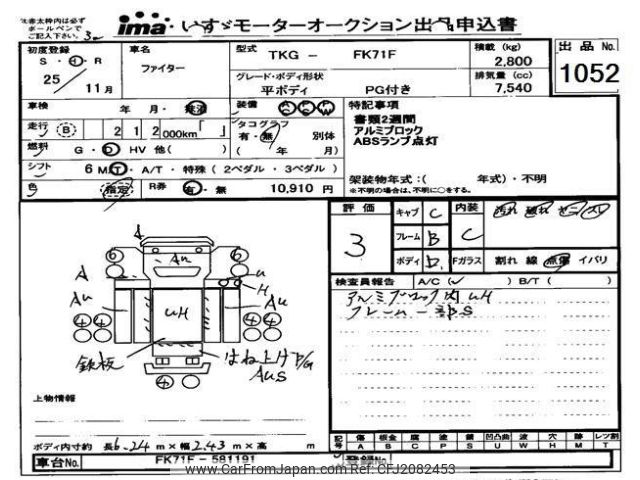 ※書太枠内は必ず
ボールペンで
ご記入下さい。
ima いすゞモーターオークション出品申込書
初度登録 車名 型式 TKG - FK71F 積載 (kg) 2,800 出品 No.
S ・ H ・ R ファイター
25 11 月 グレード・ボディ形状 排気量 (cc) 1052
平ボディ PG付き 7,540
車検 年 月・ 装備 A/C P/S P/W 特記事項
書類2週間
走行 (B) 2 1 2 000km「 」 タコグラフ アルミブロック
有・無 別体 ABSランプ点灯
燃料 G ・ D HV 他( ) ( 年 月)
シフト 6 M.T ・ A/T ・ 特殊 ( 2ペダル ・ 3ペダル ) 架装物年式:( 年式)・不明
色 指定 R券 有・無 10,910 円 ※不明の場合は、不明に○をする。
評価 キャブ C 内装 汚れ 破れ
3 フレーム B C
ボディ D Fガラス 割れ 線 点傷 イバリ
検査員報告 A/C ( ✓ ) B/T ( )
アルミブロック内 UH
フレーム一部S
A A Au 6 6 u H
Au UH Au
4 4 4 4
鉄板 はね上げP/G
AUS
4
上物情報
ボディ内寸約 長 6.24 m × 幅 2.43 m × 高 m
記号 傷 板金 腐 塗 錆 凹凸曲 波 穴 跡 レンズ割
A B C P S U W H M T
車台No. FK71F - 581191 登録No.
www.CarFromJapan.com Ref: CFJ2082453